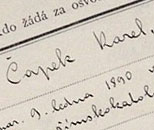 do žádá za osvo
Čapek Karel,
nar. 9. ledna 1890 v
římskokatol